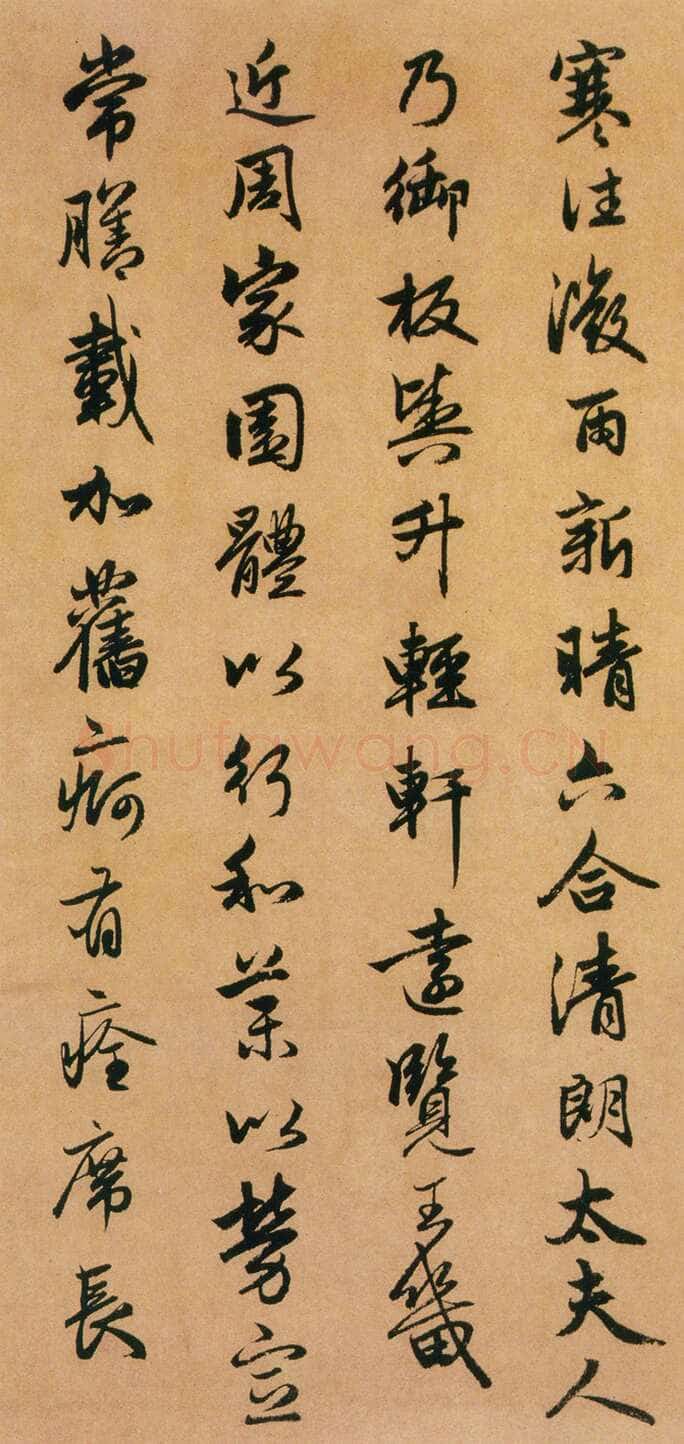 寒往微雨新晴六合清朗太夫人
乃御板輿升輕軒遠覽王畿
近周家園體以行和藥以勞宣
常膳載加舊痾有痊席長
Shufawang.CN